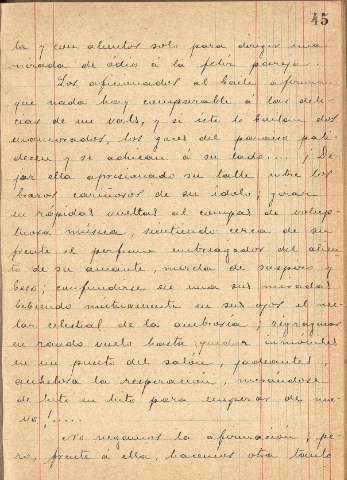 45
ta y con alientos solo para dirigir una
mirada de odio á la feliz pareja.
Los aficionados al baile afirman
que nada hay comparable á las deli-
cias de un vals, y si éste lo bailan dos
enamorados, los goces del paraiso pali-
decen y se achican á su lado... ¡De-
jar ella aprisionado su talle entre los
brazos cariñosos de su ídolo; girar
en rápidas vueltas al compas de volup-
tuosa música, sintiendo cerca de su
frente el perfume embriagador del alien-
to de su amante, mezcla de suspiro y
beso; confundirse en una sus miradas
bebiendo mutuamente en sus ojos el nec-
tar celestial de la ambrosía;
en raudo vuelo hasta quedar inmóviles
en un punto del salón, jadeantes,
anhelosa la respiración, mirandose
de hito en hito para empezar de nue-
vo!.....
No negamos la afirmación; pe-
ro, frente á ella, hacemos otra tanto